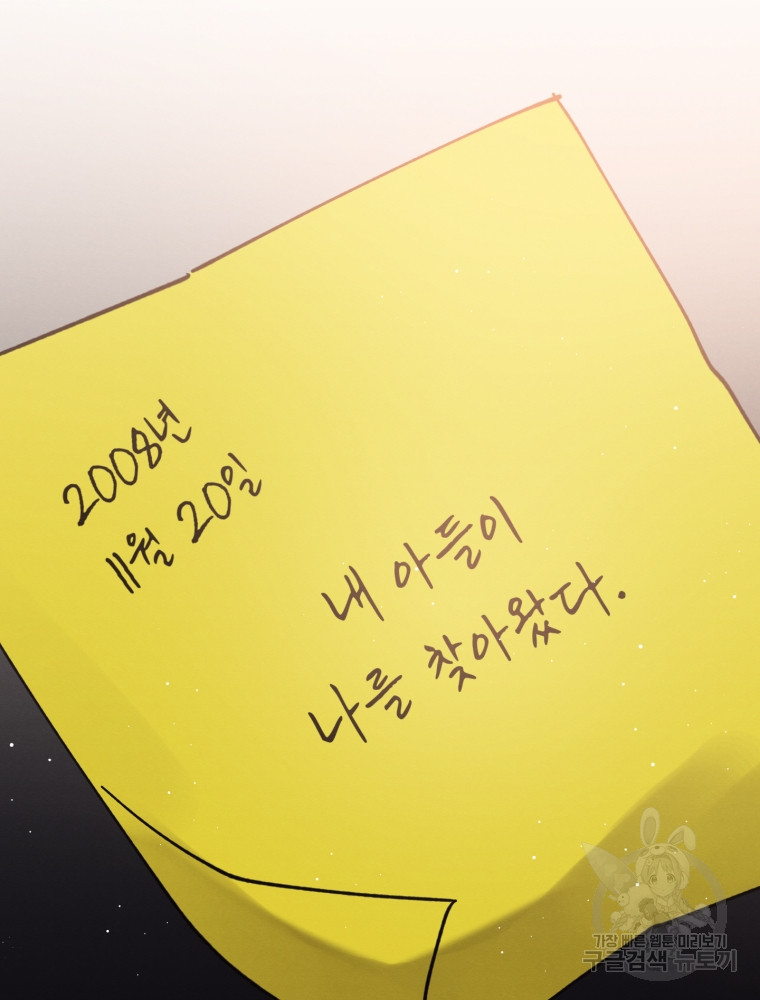 2008년
11월 20일
내 아들이
나를 찾아왔다.
가장 빠른 웹툰 미리보기
구글검색 뉴토끼